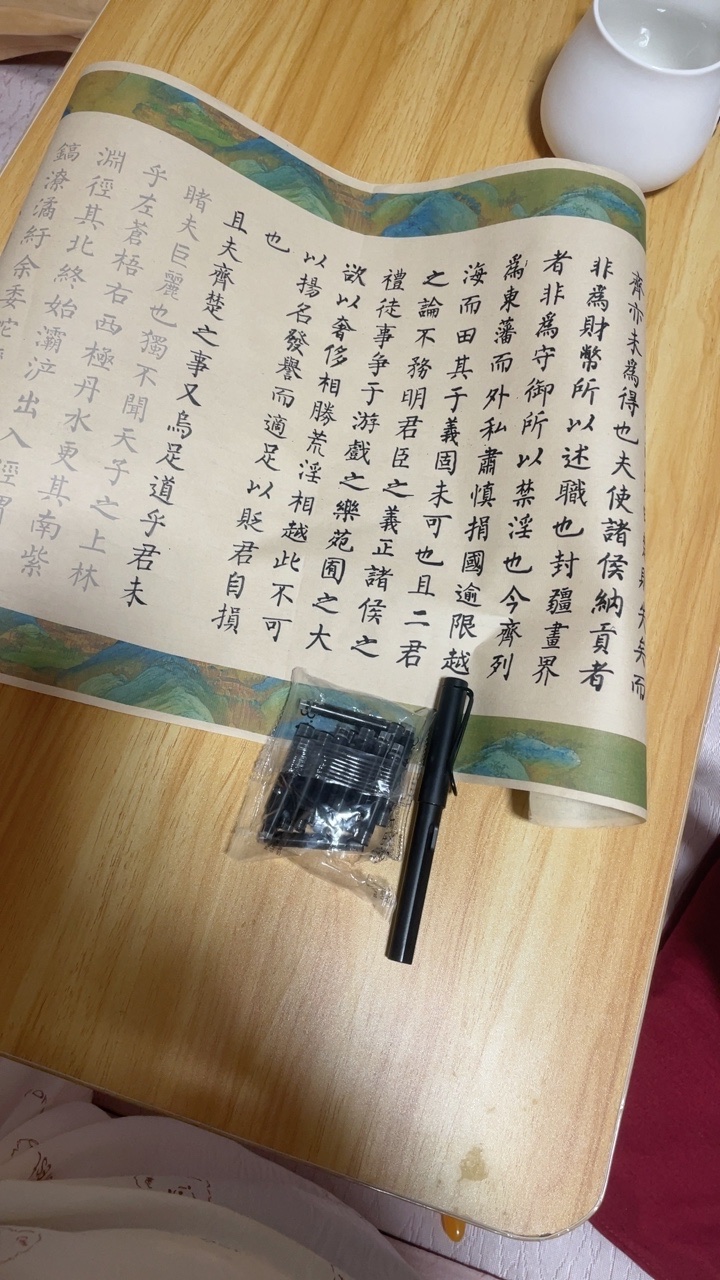 則失矣而
齊亦未為得也夫使諸侯納貢者
非為財幣所以述職也封疆畫界
者非為守御所以禁淫也今齊列
為東藩而外私肅慎捐國逾限越
海而田其于義固未可也且二君
之論不務明君臣之義正諸侯之
禮徒事争于游戲之樂苑囿之大
欲以奢侈相勝荒淫相越此不可
以揚名發譽而適足以貶君自損
也
且夫齊楚之事又烏足道乎君未
睹夫巨麗也獨不聞天子之上林
乎左蒼梧右西極丹水更其南紫
淵徑其北終始灞浐出入涇渭
鎬潦潏紆余委蛇